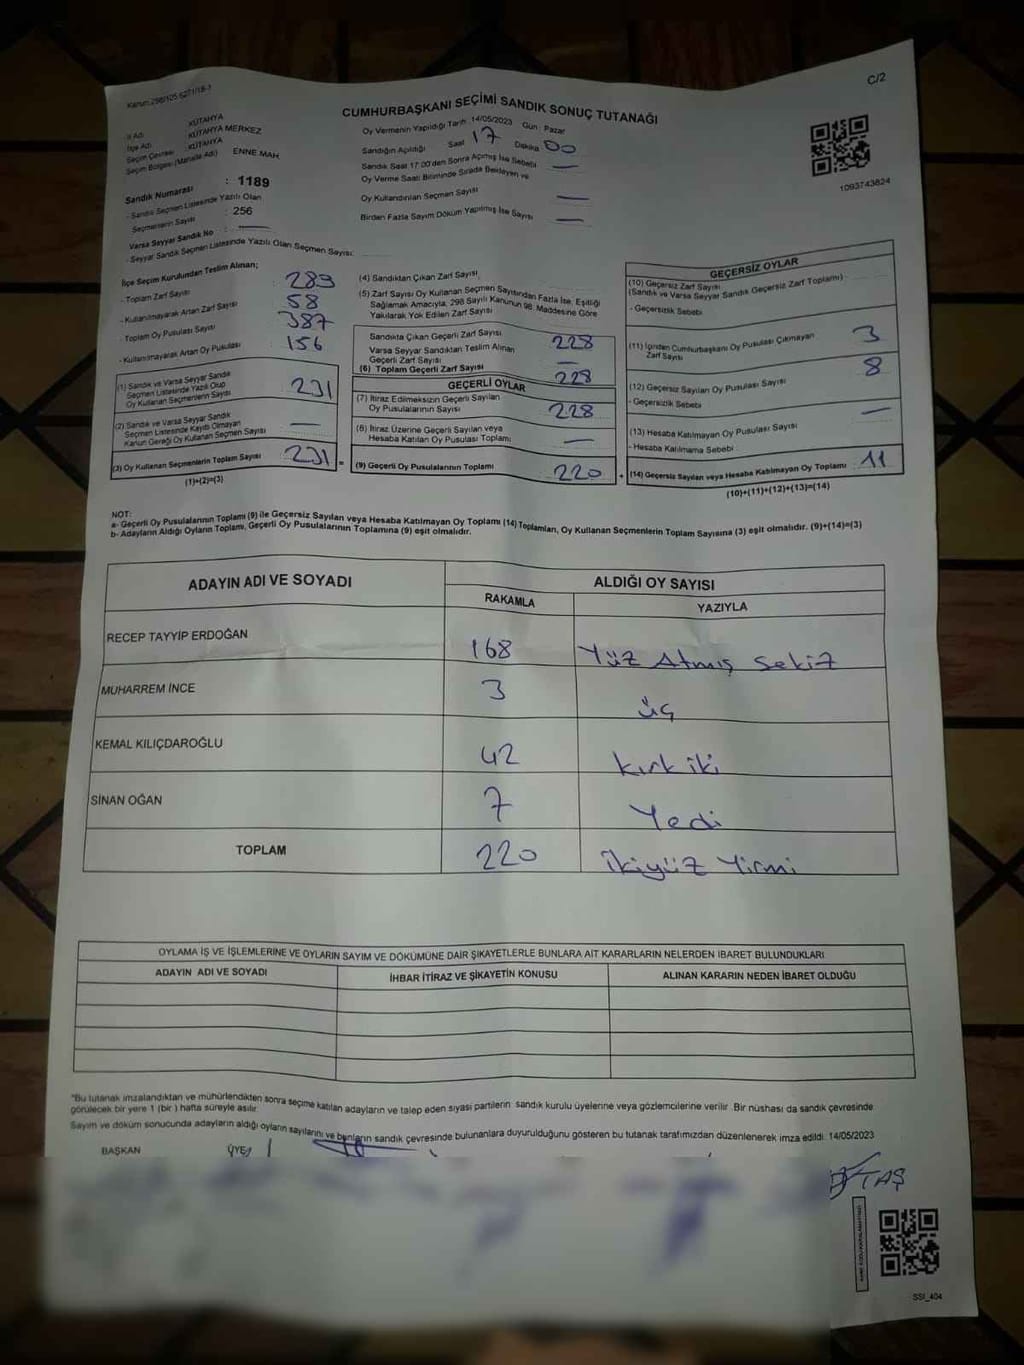 Kanun:298/105 6271/18-1
C/2
CUMHURBAŞKANI SEÇİMİ SANDIK SONUÇ TUTANAĞI
İl Adı : KÜTAHYA
İlçe Adı : KÜTAHYA MERKEZ
Seçim Çevresi : KÜTAHYA
Seçim Bölgesi (Mahalle Adı) ENNE MAH.
Sandık Numarası : 1189
- Sandık Seçmen Listesinde Yazılı Olan
Seçmenlerin Sayısı : 256
Varsa Seyyar Sandık No : —
- Seyyar Sandık Seçmen Listesinde Yazılı Olan Seçmen Sayısı:
Oy Vermenin Yapıldığı Tarih 14/05/2023 Gün : Pazar
Sandığın Açıldığı Saat 17 Dakika 00
Sandık Saat 17:00'den Sonra Açılmış İse Sebebi —
Oy Verme Saati Bitiminde Sırada Bekleyen ve
Oy Kullandırılan Seçmen Sayısı —
Birden Fazla Sayım Döküm Yapılmış İse Sayısı —
1093743824
İlçe Seçim Kurulundan Teslim Alınan;
- Toplam Zarf Sayısı 289
- Kullanılmayarak Artan Zarf Sayısı 58
- Toplam Oy Pusulası Sayısı 387
- Kullanılmayarak Artan Oy Pusulası 156
(1) Sandık ve Varsa Seyyar Sandık
Seçmen Listesinde Yazılı Olup
Oy Kullanan Seçmenlerin Sayısı 231
(2) Sandık ve Varsa Seyyar Sandık
Seçmen Listesinde Kayıtlı Olmayan
Kanun Gereği Oy Kullanan Seçmen Sayısı —
(3) Oy Kullanan Seçmenlerin Toplam Sayısı 231 =
(1)+(2)=(3)
(4) Sandıktan Çıkan Zarf Sayısı
(5) Zarf Sayısı Oy Kullanan Seçmen Sayısından Fazla İse, Eşitliği
Sağlamak Amacıyla, 298 Sayılı Kanunun 98. Maddesine Göre
Yakılarak Yok Edilen Zarf Sayısı
Sandıkta Çıkan Geçerli Zarf Sayısı 228
Varsa Seyyar Sandıktan Teslim Alınan
Geçerli Zarf Sayısı —
(6) Toplam Geçerli Zarf Sayısı 228
GEÇERLİ OYLAR
(7) İtiraz Edilmeksizin Geçerli Sayılan
Oy Pusulalarının Sayısı 228
(8) İtiraz Üzerine Geçerli Sayılan veya
Hesaba Katılan Oy Pusulası Toplamı —
(9) Geçerli Oy Pusulalarının Toplamı 220 +
GEÇERSİZ OYLAR
(10) Geçersiz Zarf Sayısı
(Sandık ve Varsa Seyyar Sandık Geçersiz Zarf Toplamı)
- Geçersizlik Sebebi
(11) İçinden Cumhurbaşkanı Oy Pusulası Çıkmayan
Zarf Sayısı 3
(12) Geçersiz Sayılan Oy Pusulası Sayısı 8
- Geçersizlik Sebebi
(13) Hesaba Katılmayan Oy Pusulası Sayısı —
- Hesaba Katılmama Sebebi
(14) Geçersiz Sayılan veya Hesaba Katılmayan Oy Toplamı 11
(10)+(11)+(12)+(13)=(14)
NOT:
a- Geçerli Oy Pusulalarının Toplamı (9) ile Geçersiz Sayılan veya Hesaba Katılmayan Oy Toplamı (14) Toplamları, Oy Kullanan Seçmenlerin Toplam Sayısına (3) eşit olmalıdır. (9)+(14)=(3)
b- Adayların Aldığı Oyların Toplamı, Geçerli Oy Pusulalarının Toplamına (9) eşit olmalıdır.
ADAYIN ADI VE SOYADI ALDIĞI OY SAYISI
RAKAMLA YAZIYLA
RECEP TAYYİP ERDOĞAN 168 Yüz Atmış Sekiz
MUHARREM İNCE 3 üç
KEMAL KILIÇDAROĞLU 42 kırk iki
SİNAN OĞAN 7 Yedi
TOPLAM 220 İkiyüz Yirmi
OYLAMA İŞ VE İŞLEMLERİNE VE OYLARIN SAYIM VE DÖKÜMÜNE DAİR ŞİKAYETLERLE BUNLARA AİT KARARLARIN NELERDEN İBARET BULUNDUKLARI
ADAYIN ADI VE SOYADI İHBAR İTİRAZ VE ŞİKAYETİN KONUSU ALINAN KARARIN NEDEN İBARET OLDUĞU
"Bu tutanak imzalandıktan ve mühürlendikten sonra seçime katılan adayların ve talep eden siyasi partilerin sandık kurulu üyelerine veya gözlemcilerine verilir. Bir nüshası da sandık çevresinde
görülecek bir yere 1 (bir ) hafta süreyle asılır.
Sayım ve döküm sonucunda adayların aldığı oyların sayılarını ve bunların sandık çevresinde bulunanlara duyurulduğunu gösteren bu tutanak tarafımızdan düzenlenerek imza edildi. 14/05/2023
BAŞKAN ÜYE
TAŞ
SSI_404